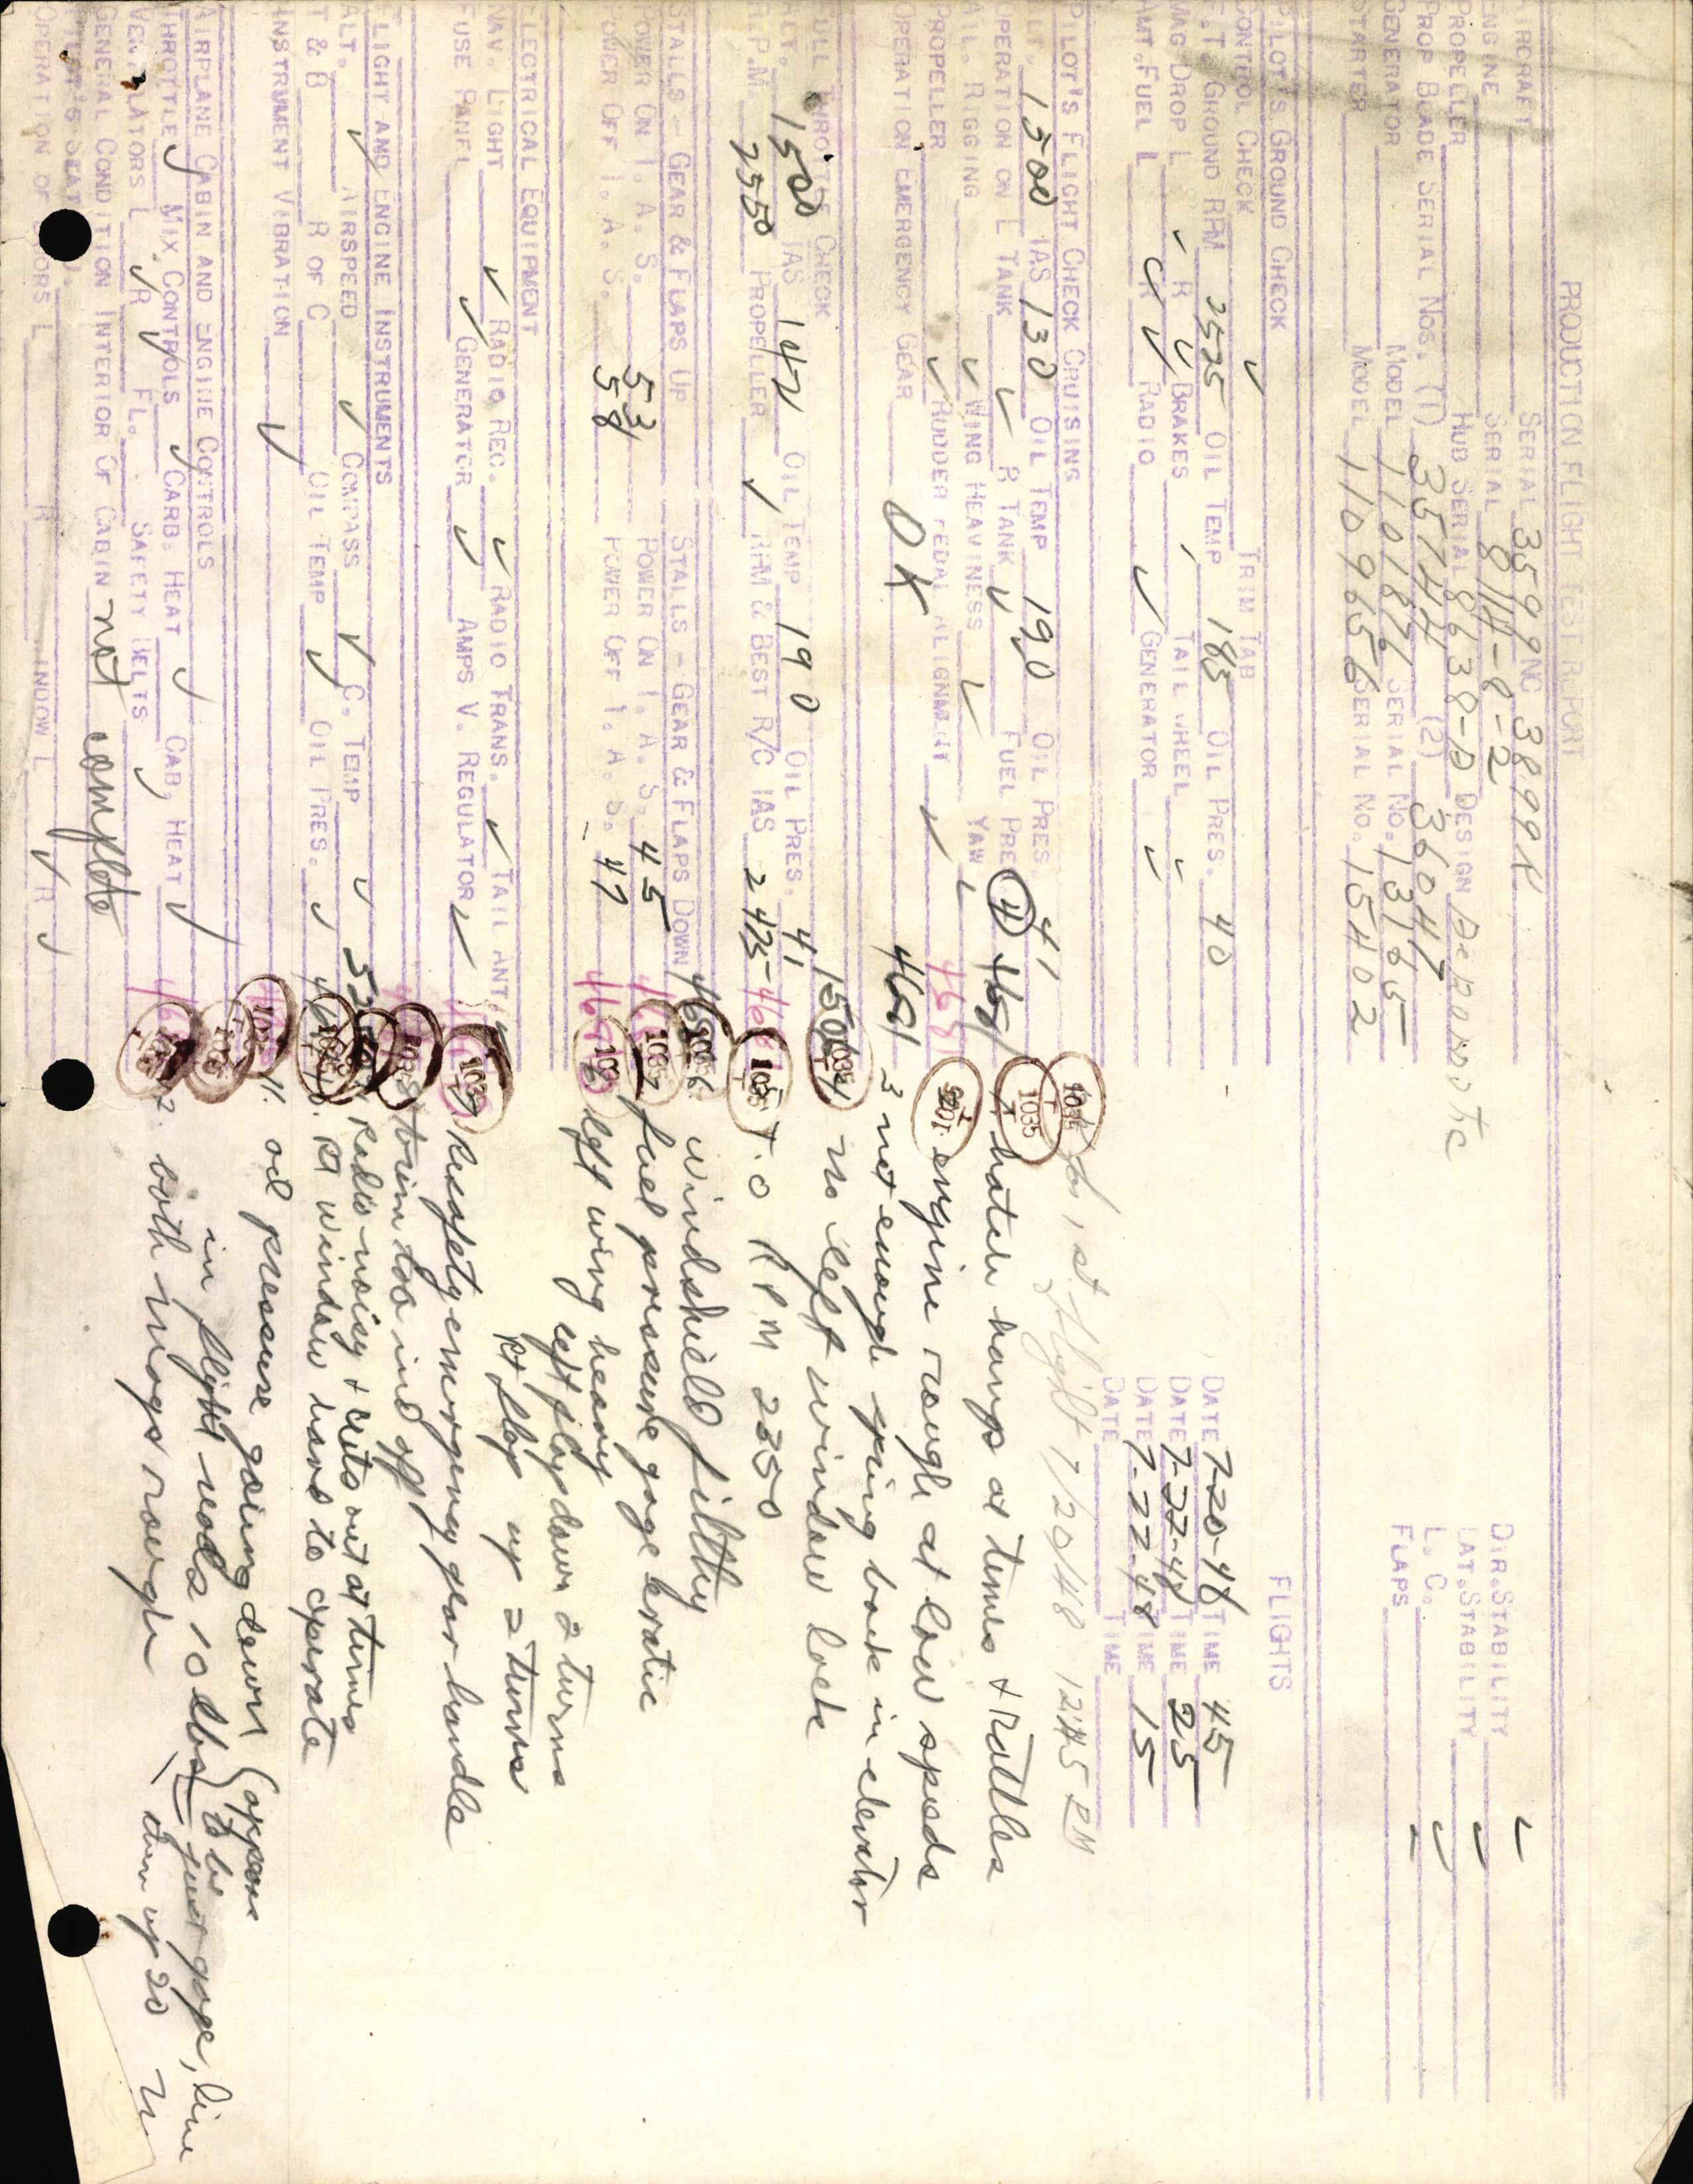 PRODUCTION FLIGHT TEST REPORT
AIRCRAFT SERIAL 3599 NC 3899N
ENGINE SERIAL 811H-8-2
PROPELLER HUB SERIAL 8638-D DESIGN
PROP BLADE SERIAL NOS. (1) 35744 (2) 36047
GENERATOR MODEL 1101876 SERIAL NO. 13165
STARTER MODEL 1109656 SERIAL NO. 15402
DIR. STABILITY ✓
LAT. STABILITY ✓
L. C. ✓
FLAPS
PILOT'S GROUND CHECK
CONTROL CHECK ✓ TRIM TAB
GROUND RPM 2525 OIL TEMP 185 OIL PRES. 40
MAG DROP L ✓ R ✓ BRAKES TAIL WHEEL ✓
AMT. FUEL L ✓ R ✓ RADIO ✓ GENERATOR ✓
FLIGHTS
DATE 7-20-48 TIME 45
DATE 7-22-48 TIME 25
DATE 7-22-48 TIME 15
DATE TIME
PILOT'S FLIGHT CHECK CRUISING
ALT. 1500 IAS 130 OIL TEMP 190 OIL PRES. 41
OPERATION ON L TANK ✓ R TANK ✓ FUEL PRES 4
AIL. RIGGING ✓ WING HEAVINESS ✓ YAW ✓
PROPELLER ✓ RUDDER PEDAL ALIGNMENT ✓
OPERATION EMERGENCY GEAR OK
FULL THROTTLE CHECK
ALT. 1500 IAS 142 OIL TEMP 190 OIL PRES. 41
R.P.M 2550 PROPELLER ✓ RPM & BEST R/C IAS 2475
STALLS - GEAR & FLAPS UP STALLS - GEAR & FLAPS DOWN
POWER ON I. A. S. 53 POWER ON I. A. S. 45
POWER OFF I. A. S. 58 POWER OFF I. A. S. 47
ELECTRICAL EQUIPMENT
NAV. LIGHT ✓ RADIO REC. ✓ RADIO TRANS. ✓ TAIL ANT.
FUSE PANEL ✓ GENERATOR ✓ AMPS V. REGULATOR ✓
FLIGHT AND ENGINE INSTRUMENTS
ALT. ✓ AIRSPEED ✓ COMPASS ✓ C. TEMP ✓
T & B R OF C OIL TEMP ✓ OIL PRES. ✓
INSTRUMENT VIBRATION ✓
AIRPLANE CABIN AND ENGINE CONTROLS
THROTTLE ✓ MIX CONTROLS ✓ CARB. HEAT ✓ CAB. HEAT ✓
VENTILATORS L ✓ R ✓ FL. SAFETY BELTS ✓
GENERAL CONDITION INTERIOR OF CABIN not complete
PILOT'S SEAT
OPERATION OF DOORS L R WINDOW L ✓ R ✓
1st flight 7/20/48 1245 PM
hatch hangs at times + rattles
engine rough at low speeds
3 not enough spring back in elevator
4 no left window lock
T.O RPM 2250
6. windshield filthy
7 fuel pressure gage eratic
left wing heavy
left flap down 2 turns
Rt flap up 2 turns
Resafety emergency gear handle
trim too ind off
Radio noisy + cuts out at times
Rt window hard to operate
11. oil pressure going down (appears
in flight reads 10 lbs) to be just gage, line
both mags rough
1035